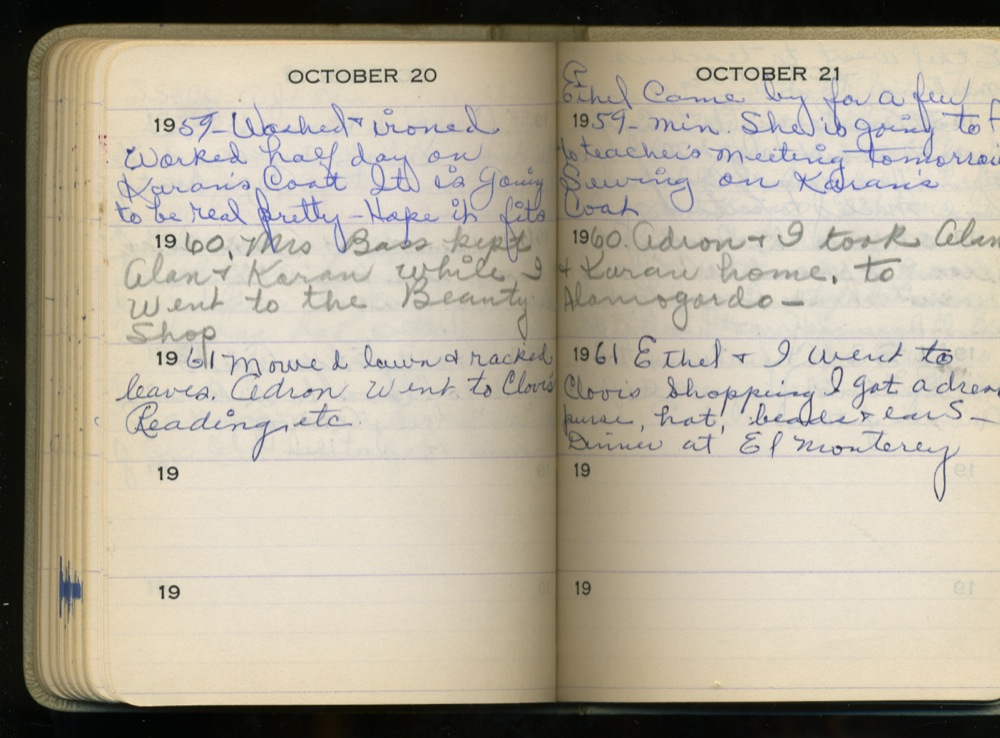 OCTOBER 20
1959- Washed & ironed
Worked half day on
Karan's Coat It is going
to be real pretty - Hope it fits
1960. Mrs Bass kept
Alan & Karan while I
went to the Beauty
Shop
1961 Mowed lawn & racked
leaves. Adron went to Clovis
Reading, etc.
19
19
OCTOBER 21
Ethel Came by for a few
1959- min. She is going to
to teacher's meeting tomorrow
Sewing on Karan's
Coat
1960. Adron & I took Alan
& Karan home, to
Alamogordo -
1961 Ethel & I went to
Clovis Shopping I got a dress
purse, hat, beads & ear S-
Dinner at El Monterey
19
19